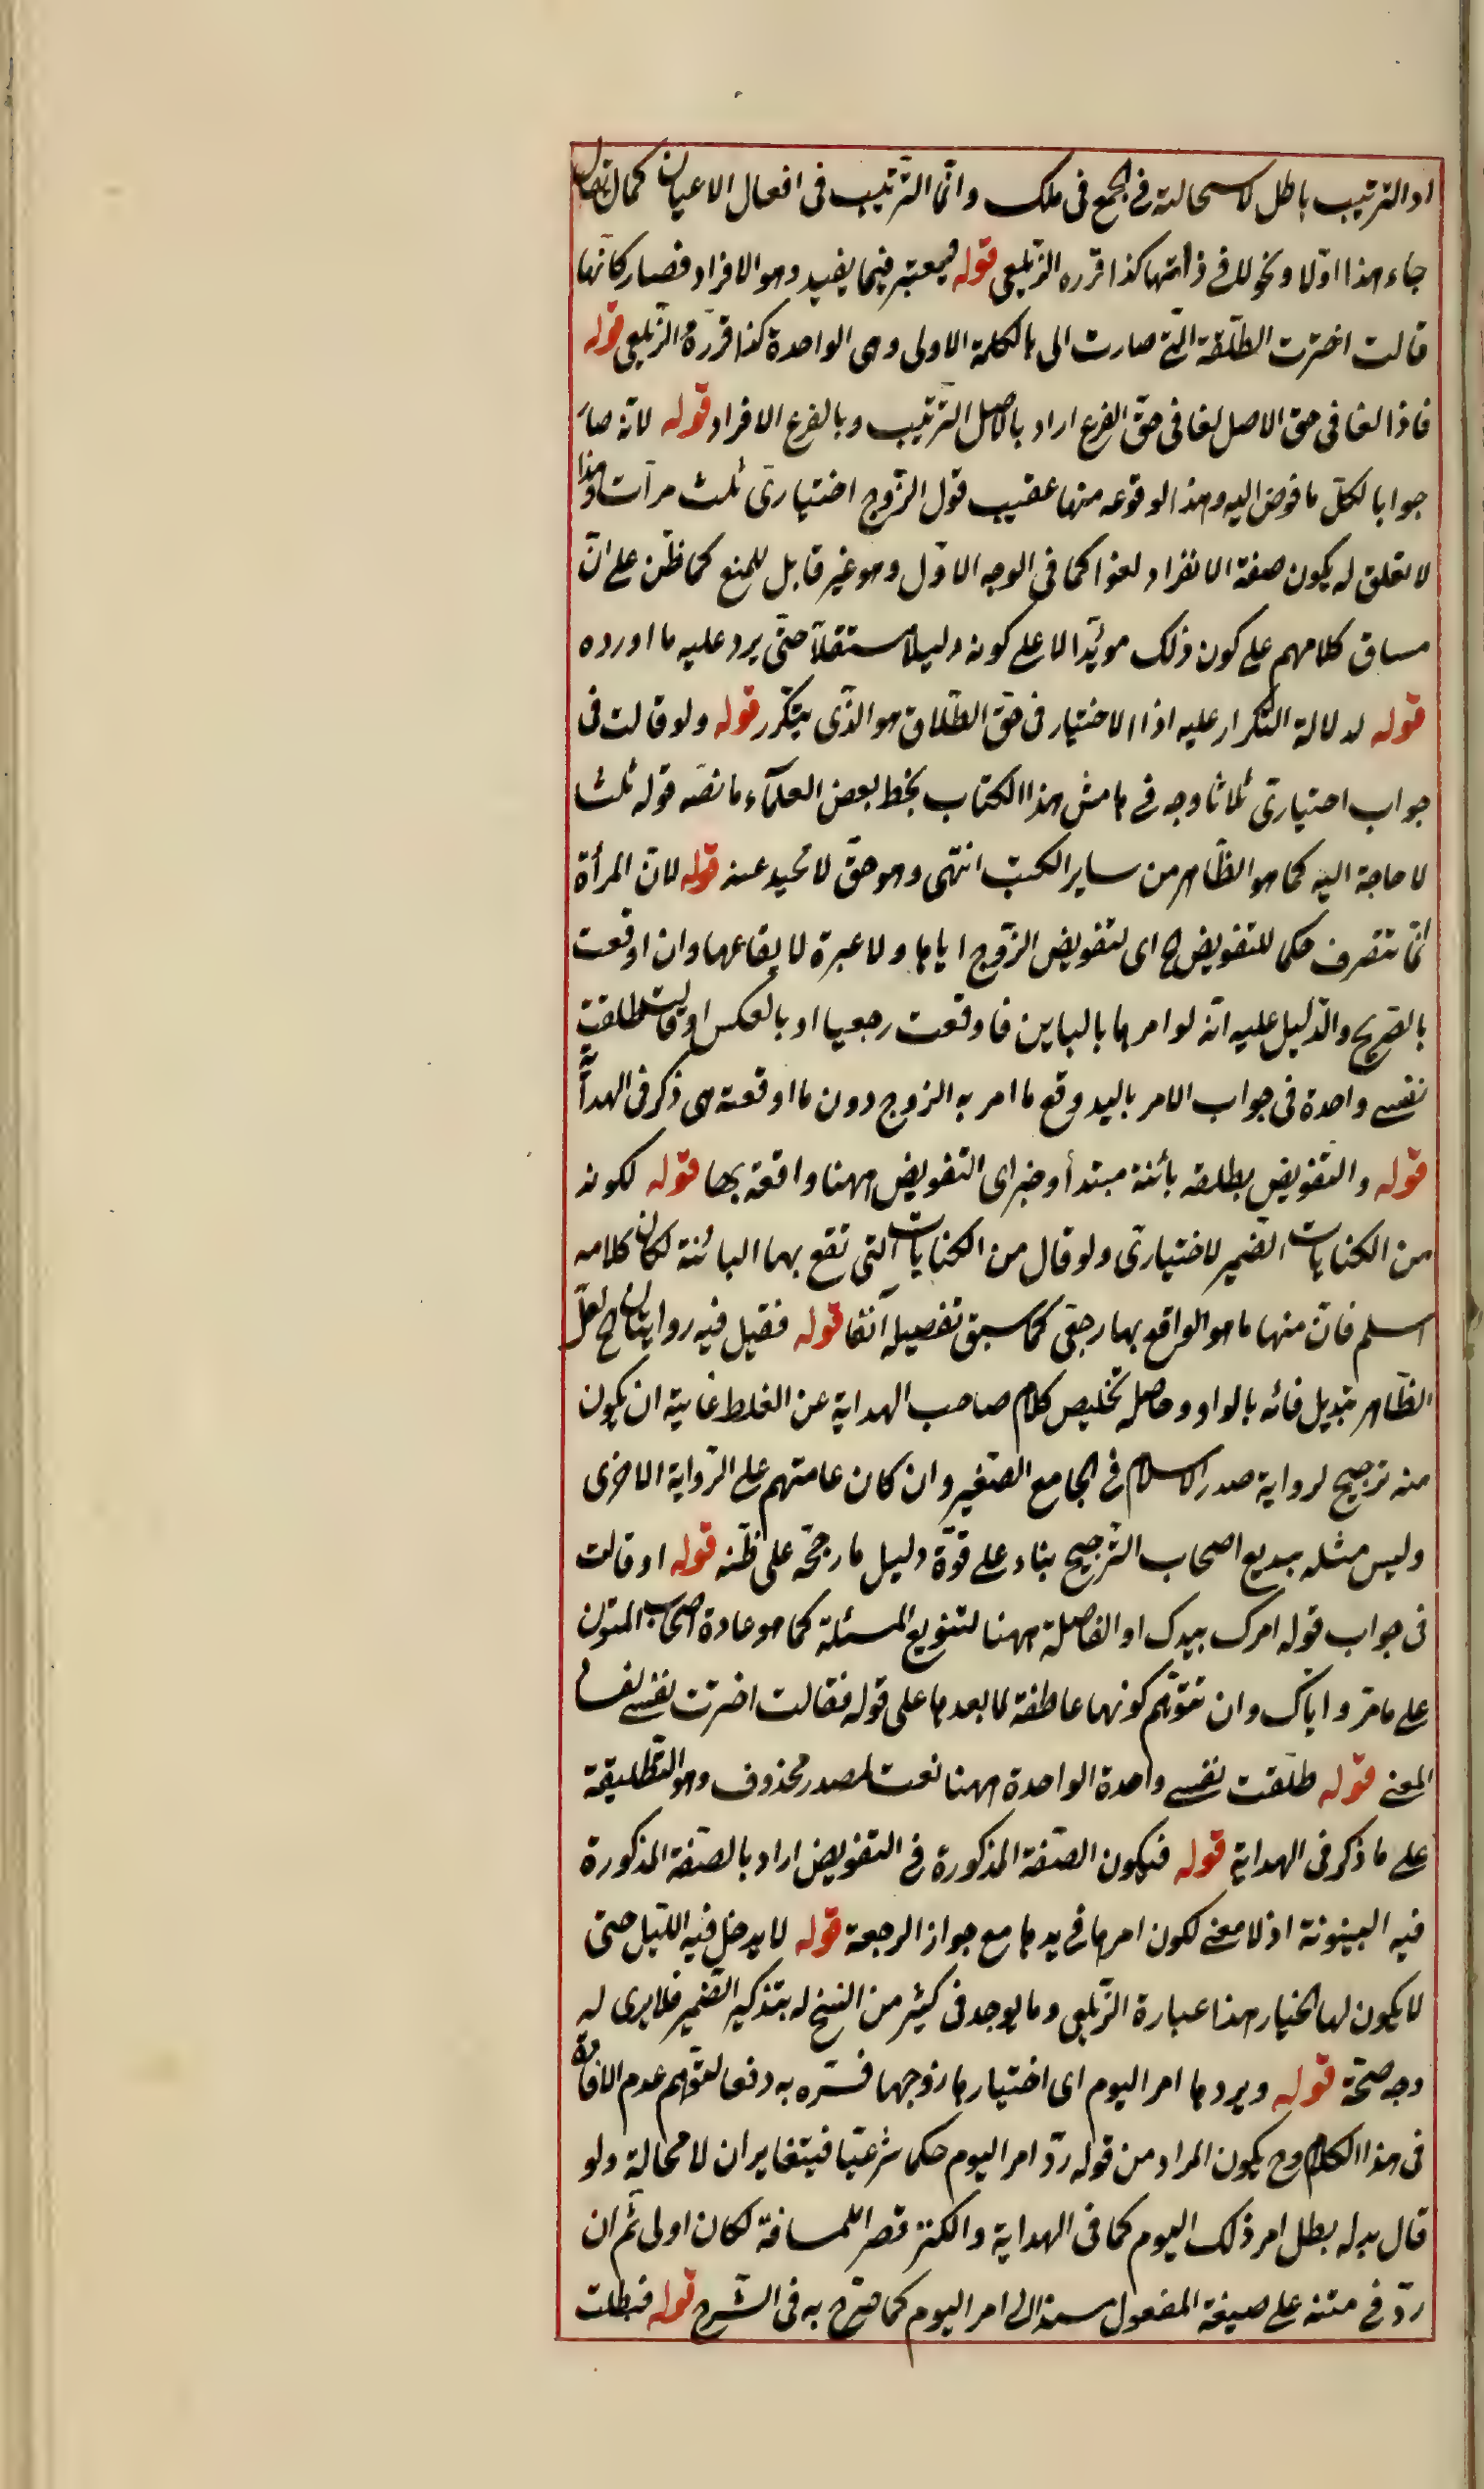 اذ الترتيب باطل لاستحالته في الجمع في ملك وانما الترتيب في افعال الاعيان كما يقال
جاء هذا اولا ونحو ذلك في ذاتها كذا قرره الزيلعي قوله فيعتبر فيما يفيد وهو الافراد فصار كانها
قالت اخترت الطلقة التي صارت الى بالكلمة الاولى وهى الواحدة كذا قرره الزيلعي قوله
فاذا لغا في حق الاصل لغا في حق الفرع اراد بالاصل الترتيب وبالفرع الافراد قوله لانه صار
جوابا لكل ما فوض اليه وهذا لوقوعه منها عقيب قول الزوج اختيارى ثلث مرات وهذا
لا تعلق له بكون صفة الانفراد لغوا كما في الوجه الاول وهو غير قابل للمنع كما ظن على ان
مساق كلامهم على كون ذلك مؤيدا لا على كونه دليلا مستقلا حتى يرد عليه ما اورده
قوله لدلالة التكرار عليه اذ الاختيار في حق الطلاق هو الذى يتكرر قوله ولو قالت في
جواب اختيارى ثلاثا وجه في هامش هذا الكتاب بخط بعض العلماء ما نصه قوله ثلثا
لا حاجة اليه كما هو الظاهر من ساير الكتب انتهى وهو حق لا محيد عنه قوله لان المرأة
انما تتصرف حكما للتفويض ح اى لتفويض الزوج اياها ولا عبرة لايقاعها وان اوقعت
بالصريح والدليل عليه انه لو امرها بالباين فاوقعت رجعيا او بالعكس او قالت طلقت
نفسى واحدة في جواب الامر باليد وقع ما امر به الزوج دون ما اوقعته هى ذكر في الهداية
قوله والتفويض بطلقة بائنة مبتدأ وخبر اى التفويض ههنا واقعة بها قوله لكونه
من الكنايات الضمير لاختيارى ولو قال من الكنايات التى تقع بها البائنة لكان كلامه
اسلم فان منها ما هو الواقع بها رجعى كما سبق تفصيله آنفا قوله فقيل فيه روايتان ح لعل
الظاهر تبديل فائه بالواو وحاصله تخليص كلام صاحب الهداية عن الغلط غايته ان يكون
منه ترجيح لرواية صدر الاسلام في الجامع الصغير وان كان عامتهم على الرواية الاخرى
وليس مثله ببديع اصحاب الترجيح بناء على قوة دليل ما رجحه على ظنه قوله او قالت
في جواب قوله امرك بيدك او الفاصلة ههنا لتنويع المسئلة كما هو عادة اصحاب المتون
على ما مر واياك وان تتوهم كونها عاطفة لما بعدها على قوله فقالت اخترت نفسى لفساد
المعنى قوله طلقت نفسى واحدة الواحدة ههنا نعت لمصدر محذوف وهو التطليقة
على ما ذكر في الهداية قوله فيكون الصفة المذكورة في التفويض اراد بالصفة المذكورة
فيه البينونة اذ لا معنى لكون امرها في يدها مع جواز الرجعة قوله لا يدخل فيه الليل حتى
لا يكون لها الخيار هذا عبارة الزيلعي وما يوجد في كثير من النسخ له بتذكير الضمير فلا يرى له
وجه صحة قوله ويردها امر اليوم اى اختيارها زوجها فسره به دفعا لتوهم عدم الافادة
في هذا الكلام وح يكون المراد من قوله رد امر اليوم حكما شرعيا فيتغايران لا محالة ولو
قال بدله بطل امر ذلك اليوم كما في الهداية والكنز قصر اللمسافة لكان اولى ثم ان
رد في متنه على صيغة المفعول مسندا الى امر اليوم كما صرح به في الشرح قوله فبطلت